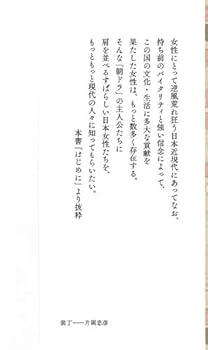 女性にとって逆風荒れ狂う日本近現代にあってなお、
持ち前のバイタリティと強い信念によって、
この国の文化・生活に多大な貢献を
果たした女性は、もっと数多く存在する。
そんな「朝ドラ」の主人公たちに
肩を並べるすばらしい日本女性たちを、
もっともっと現代の人々に知ってもらいたい。
本書『はじめに』より抜粋
装丁——片岡忠彦